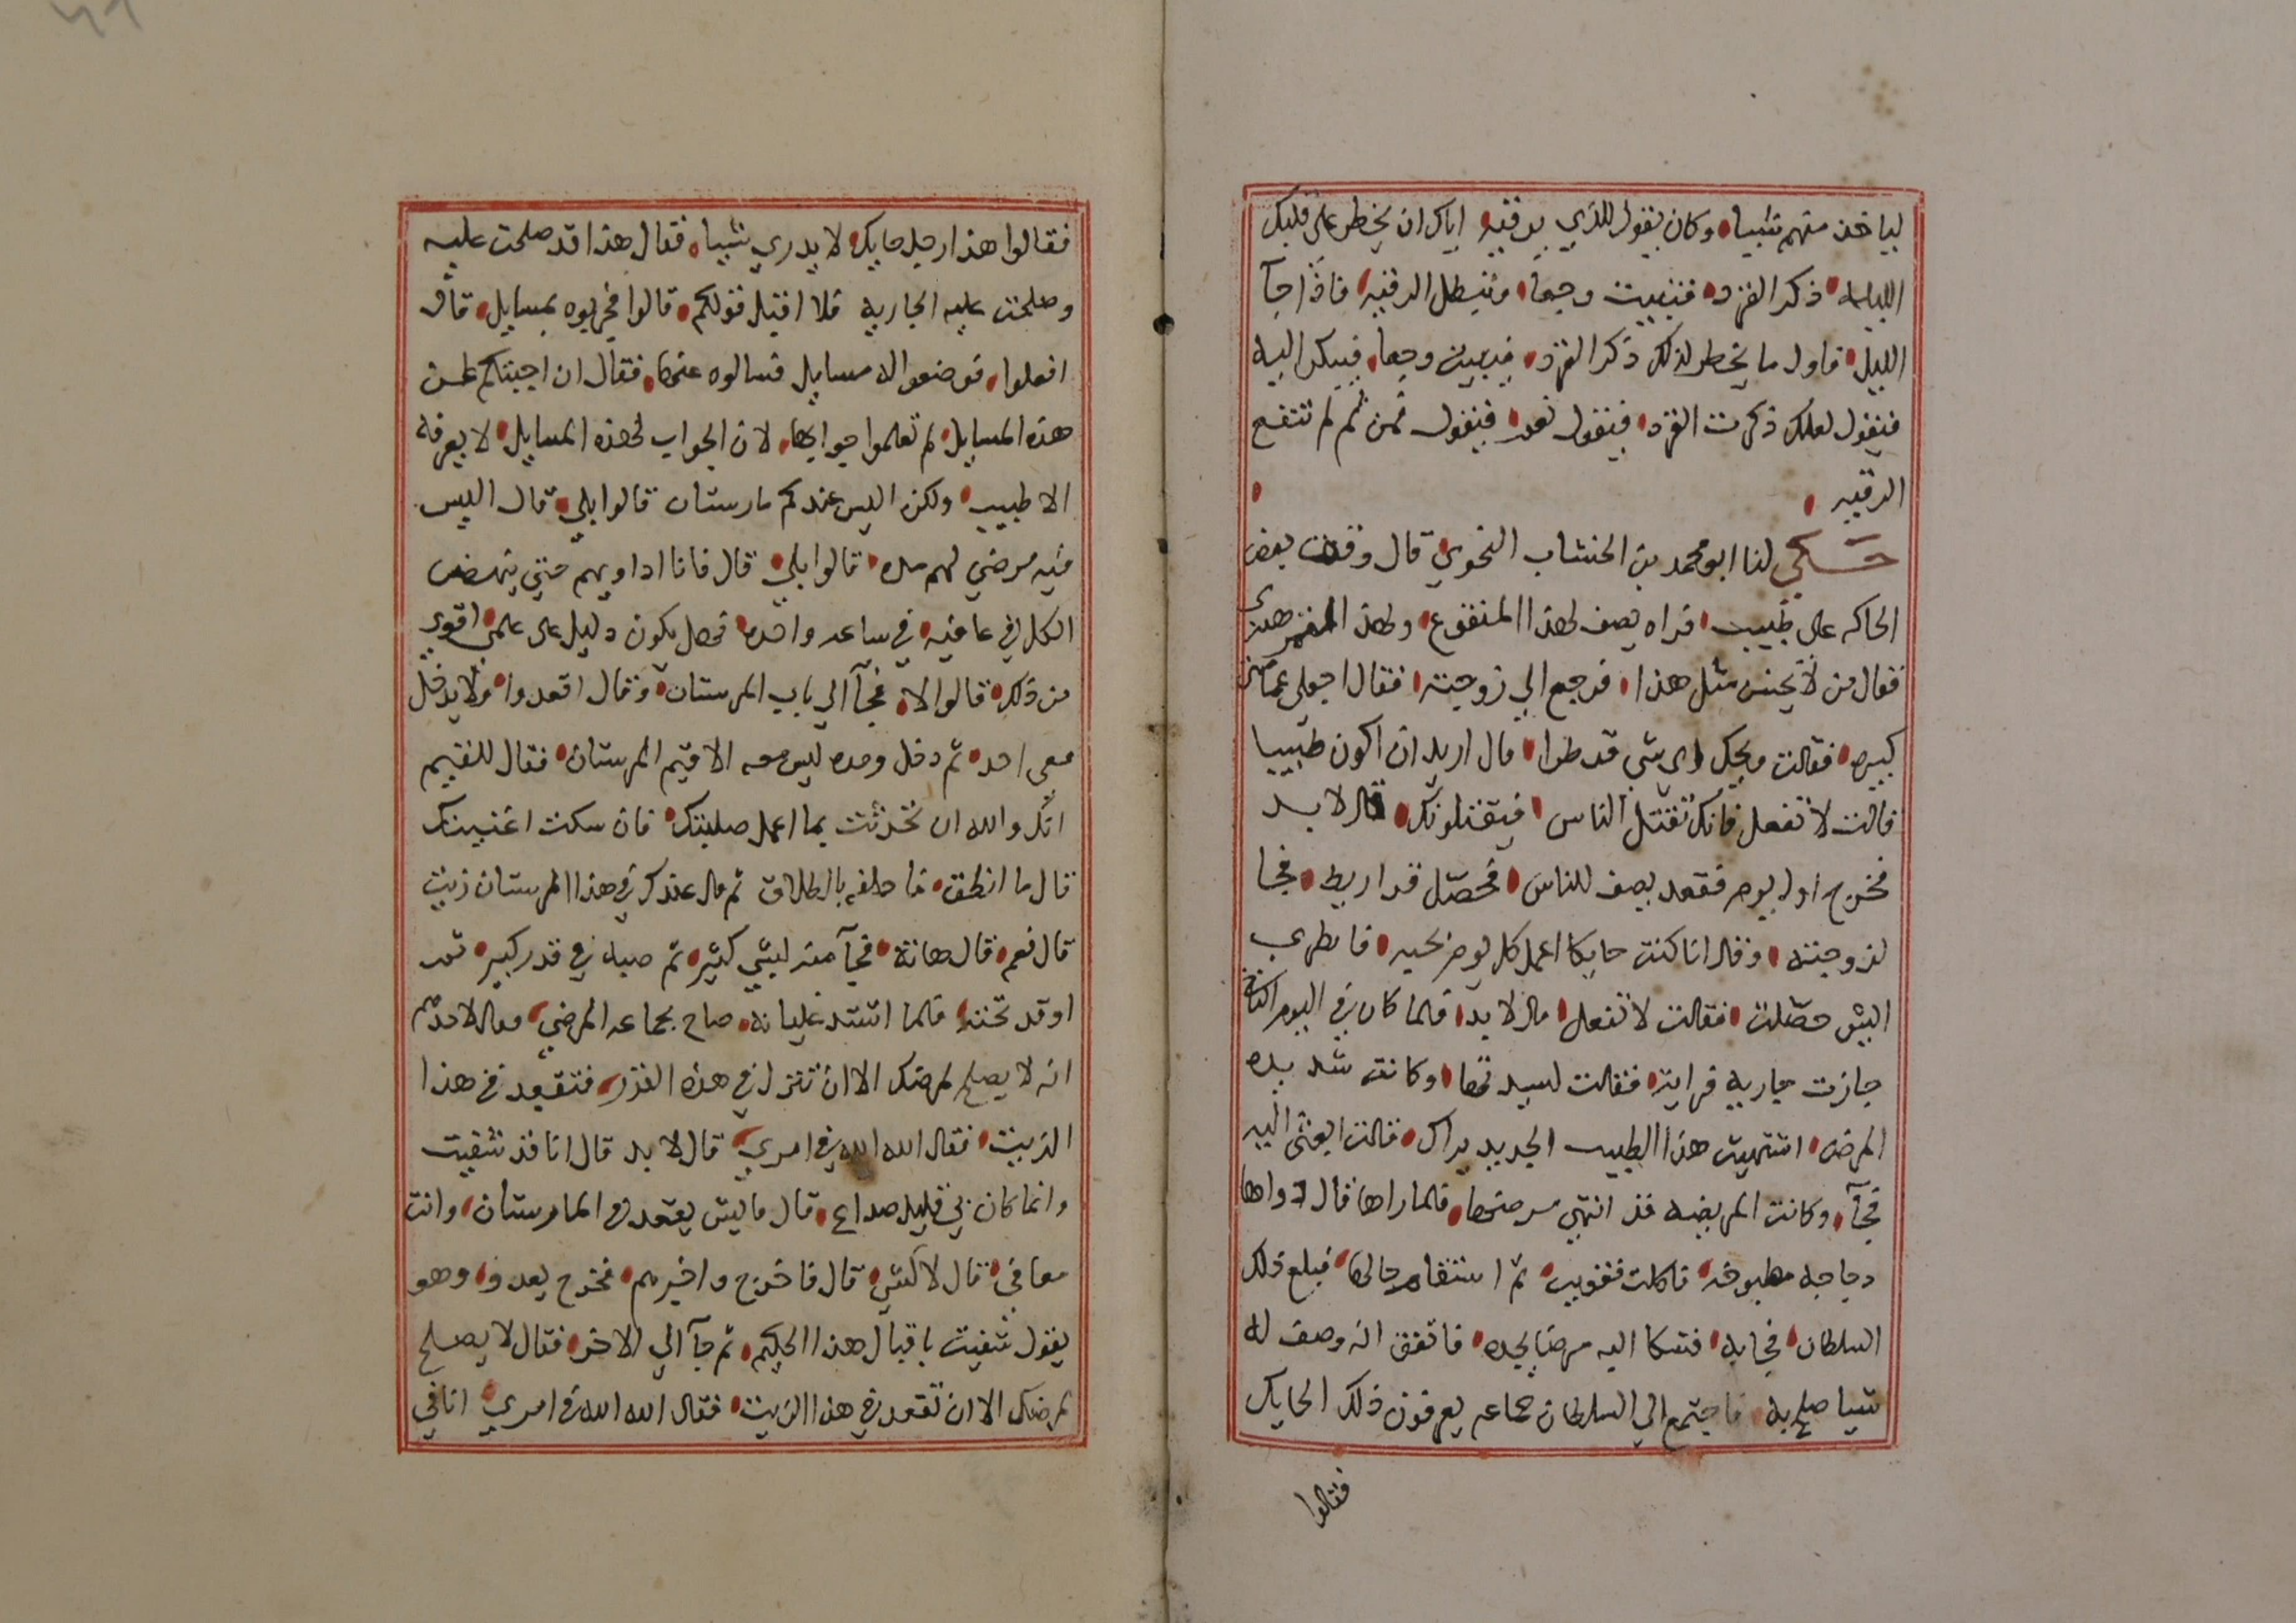 لياخذ منهم شيا وكان يقول للذي يرقيه اياك ان يخطر على قلبك
الليله ذكر القرد فتبيت وجعا وتبطل الرقيه فاذا جآ
الليل فاول ما يخطر لذلك ذكر القرد فيبيت وجعا فيبكر اليه
فيقول لعلك ذكرت القرد فيقول نعم فيقول فمن ثم لم تنتفع
الرقيه
حكي لنا ابو محمد بن الخشاب النحوي قال وقف بعض
الحاكه على طبيب فراه يصف لهذا المنقوع ولهذا التمر هندي
فقال من لا يحسن مثل هذا فرجع الي زوجته فقال اجعلي عمامتي
كبيره فقالت ويحك اي شي قد طرا قال اريد ان اكون طبيبا
قالت لا تفعل فانك تقتل الناس فيقتلونك قال لا بد
فخرج اول يوم فقعد يصف للناس فحصل قراريط فجا
لزوجته وقال انا كنت حايكا اعمل كل يوم بحبه فانظري
ايش حصلت فقالت لا تفعل قال لا بد فلما كان في اليوم الثاني
جازت جاريه فراته فقالت لسيدتها وكانت شديده
المرض اشتهيت هذا الطبيب الجديد يراك قالت ابعثي اليه
فجآ وكانت المريضه قد انتهي مرضها فلما راها قال دواها
دجاجه مطبوخه فاكلت فقويت ثم استقام حالها فبلغ ذلك
السلطان فجا به فشكا اليه مرضا يجده فاتفق انه وصف له
شيا صلح به فاجتمع الي السلطان جماعه يعرفون ذلك الحايك
فقالوا
فقالوا هذا رجل حايك لا يدري شيا فقال هذا قد صلحت عليه
وصلحت عليه الجاريه فلا اقبل قولكم قالوا فجربوه بمسايل قال
افعلوا فوضعوا له مسايل فسالوه عنها فقال ان اجبتكم عن
هذه المسايل لم تعلموا جوابها لان الجواب لهذه المسايل لا يعرفه
الا طبيب ولكن اليس عندكم مارستان قالوا بلي قال اليس
فيه مرضي لهم مده قالوا بلي قال فانا اداويهم حتي ينهض
الكل في عافيه في ساعه واحده فهل يكون دليل على علمي اقوي
من ذلك قالوا لا فجآ الي باب المرستان وقال اقعدوا ولا يدخل
معي احد ثم دخل وحده ليس معه الا قيم المرستان فقال للقيم
انك والله ان تحدثت بما اعمل صلبتك فان سكت اغنيتك
قال ما انطق فاحلفه بالطلاق ثم قال عندك في هذا المرستان زيت
قال نعم قال هاته فجآ منه بشي كثير ثم صبه في قدر كبير ثم
اوقد تحته فلما اشتد غليانه صاح بجماعه المرضي فقال لاحدهم
انه لا يصلح لمرضك الا ان تنزل في هذه القدر فتقعد في هذا
الزيت فقال الله الله في امري قال لا بد قال انا قد شفيت
وانما كان بي قليل صداع قال ما ايش يقعدك في المارستان وانت
معافي قال لا لشي قال فاخرج واخبرهم فخرج يعدو وهو
يقول شفيت باقبال هذا الحكيم ثم جآ الي الاخر فقال لا يصلح
لمرضك الا ان تقعد في هذا الزيت فقال الله الله في امري انا في